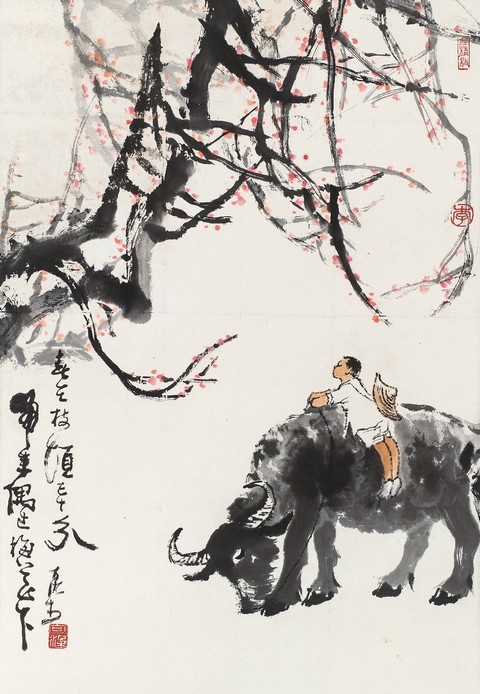 歸來偶過梅花下
春在枝頭已十分
李